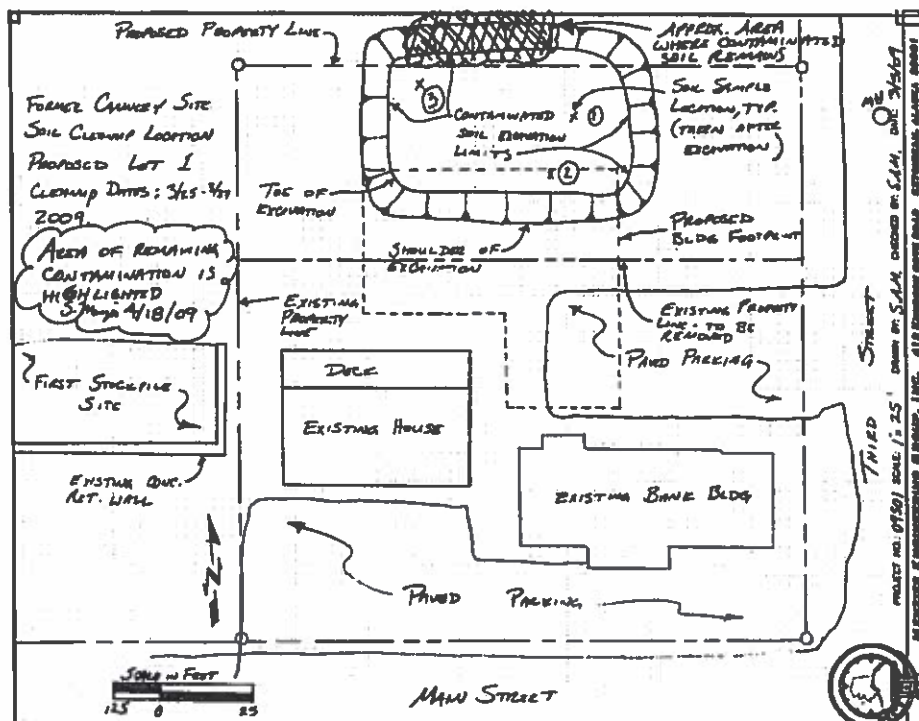 PROPOSED PROPERTY LINE
APPROX. AREA
WHERE CONTAMINATED
SOIL REMAINS
FORMER CANNERY SITE
SOIL CLEANUP LOCATION
PROPOSED LOT 1
CLEANUP DATES: 3/25-3/27
2009
AREA OF REMAINING
CONTAMINATION IS
HIGHLIGHTED
4/18/09
3
1
2
CONTAMINATED
SOIL EXCAVATION
LIMITS
SOIL SAMPLE
LOCATION, TYP.
(TAKEN AFTER
EXCAVATION)
MH
TOE OF
EXCAVATION
SHOULDER OF
EXCAVATION
PROPOSED
BLDG FOOTPRINT
EXISTING
PROPERTY
LINE
EXISTING PROPERTY
LINE - TO BE
REMOVED
PAVED PARKING
FIRST STOCKPILE
SITE
DECK
EXISTING HOUSE
EXISTING BANK BLDG
EXISTING CONC.
RET. WALL
PAVED PARKING
SCALE IN FEET
12.5 0 25
MAIN STREET
THIRD STREET
PROJECT NO: 09501 SCALE: 1"= 25' DRAWN BY: S.A.M. CHECKED BY: S.A.M.